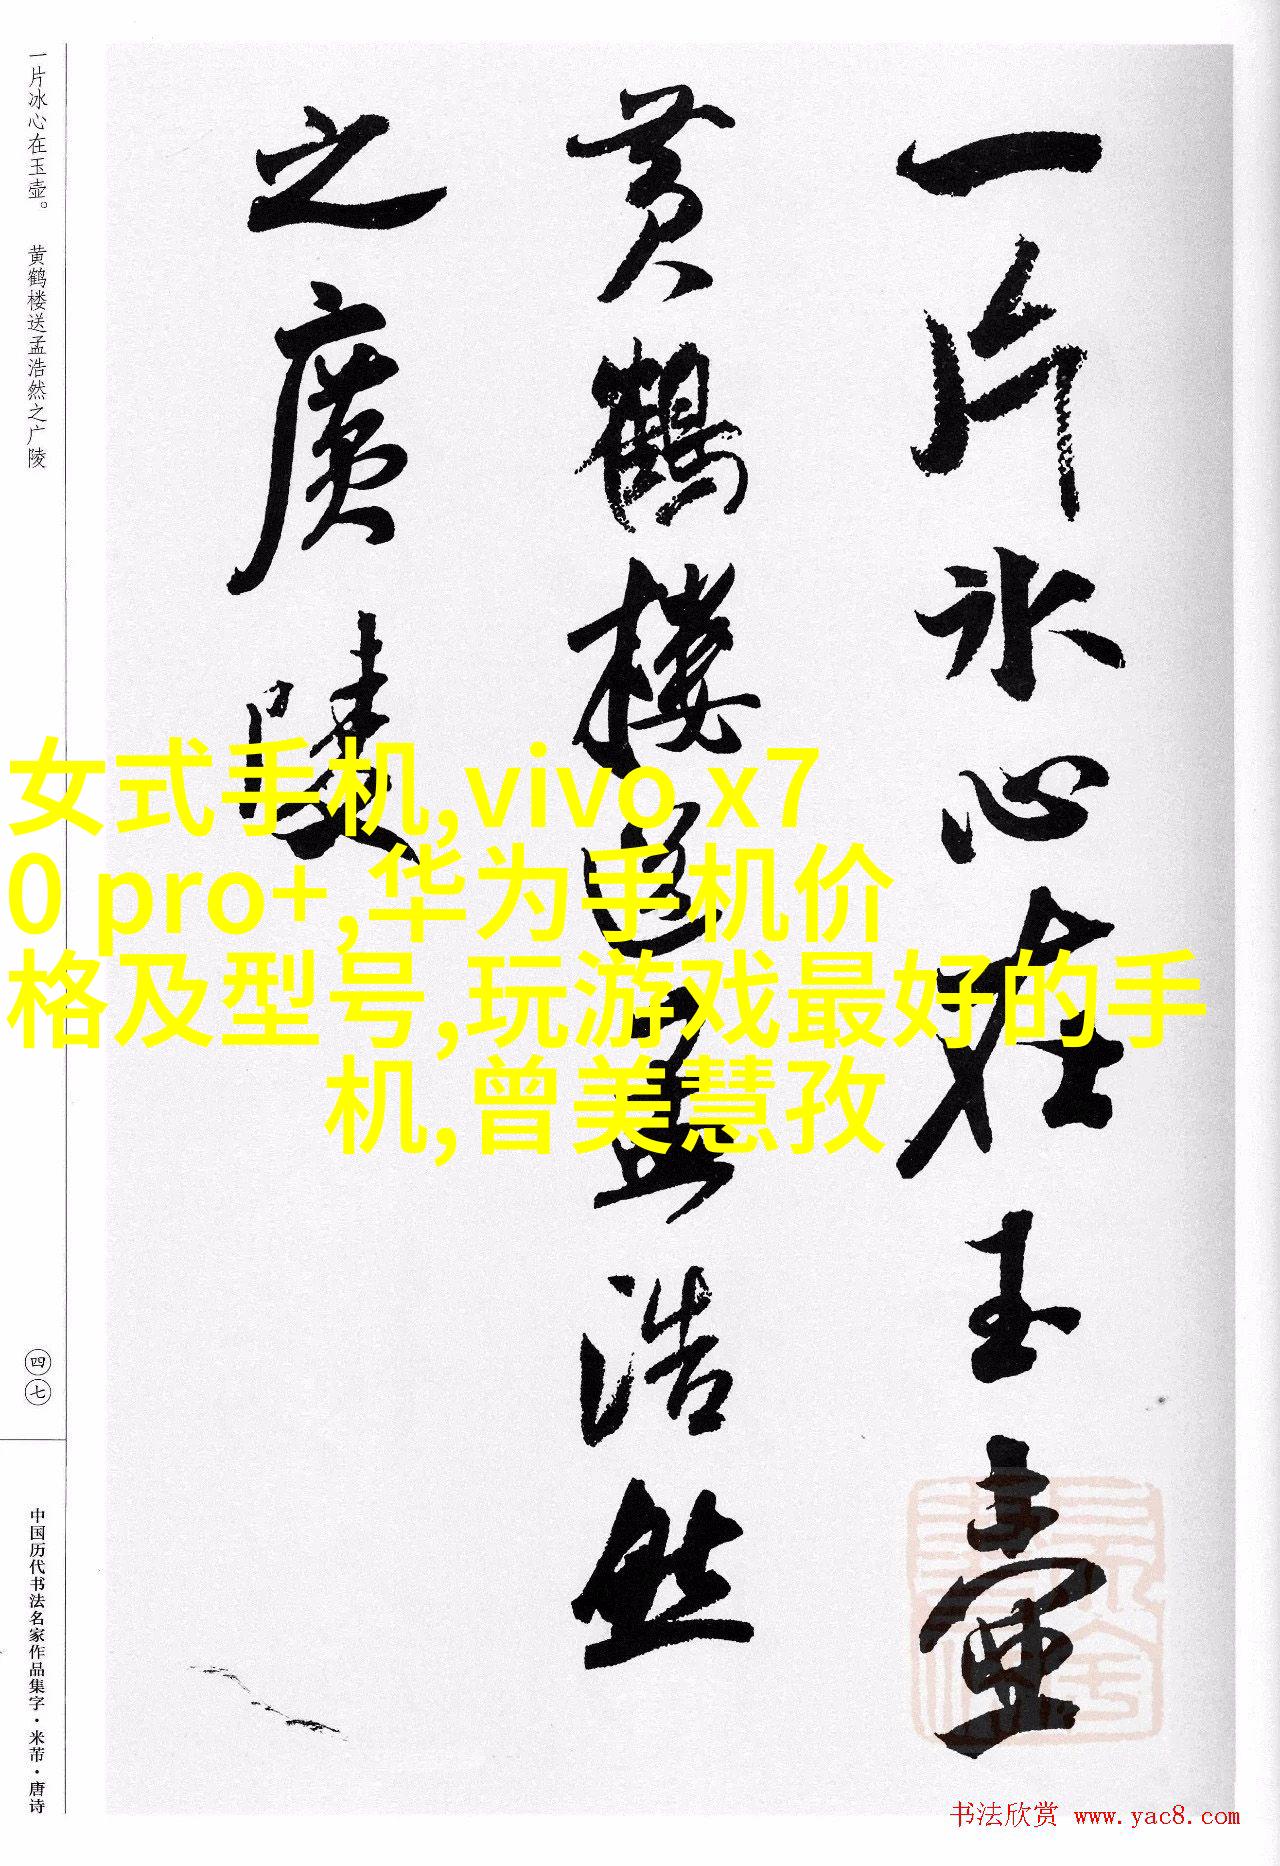 一片冰心在玉壶。 黄鹤楼送孟浩然之广陵
一片冰心在玉壺
黄鶴樓送孟浩然
之廣陵
女式手机,vivo x7
0 pro+,华为手机价
格及型号,玩游戏最好的手
机,曾美慧孜
四七
中国历代书法名家作品集字·米芾·唐诗
书法欣赏 www.yac8.com